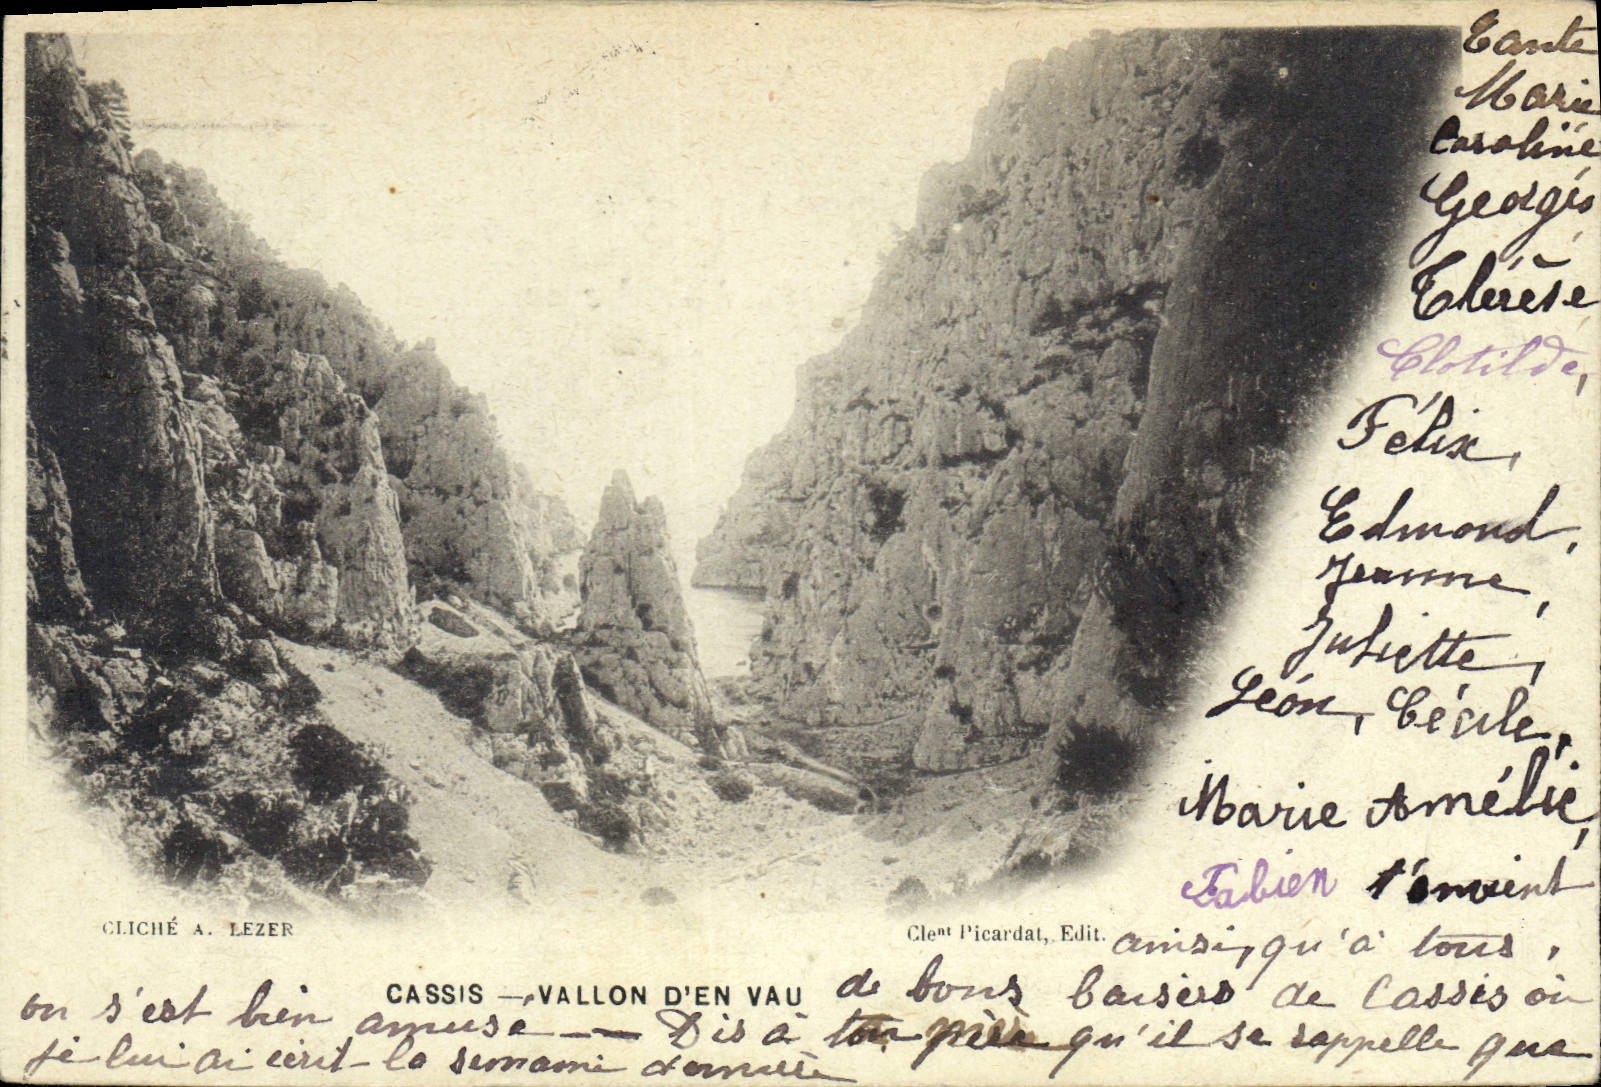 Tante
Marie
Caroline
Georgis
Thérèse
Clotilde,
Félix,
Edmond,
Jeanne,
Juliette,
Léon, Cécile,
Marie Amélie,
Fabien t'envient
CLICHÉ A. LEZER
Clent Picardat, Edit.
ainsi, qu'à tous,
CASSIS — VALLON D'EN VAU
de bons baisers de Cassis où
on s'est bien amusé — Dis à ton père qu'il se rappelle que
je lui ai écrit la semaine dernière